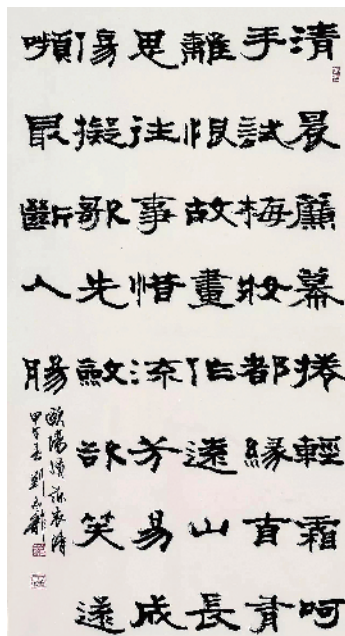 清晨簾幕捲輕霜呵
手試梅妝都緣自有
離恨故畫作遠山長
思往事惜流芳易成
傷擬歌先斂欲笑還
嚬最斷人腸
歐陽脩訴衷情
甲午春劉